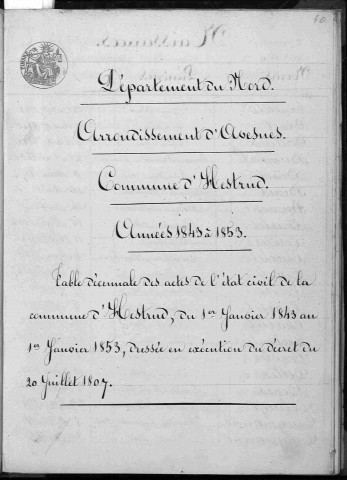 Département du Nord.
Arrondissement d'Avesnes.
Commune d'Hestrud.
Années 1843 à 1853.
Table décennale des actes de l'état civil de la
commune d'Hestrud, du 1er Janvier 1843 au
1er Janvier 1853, dressée en exécution du décret du
20 Juillet 1807.